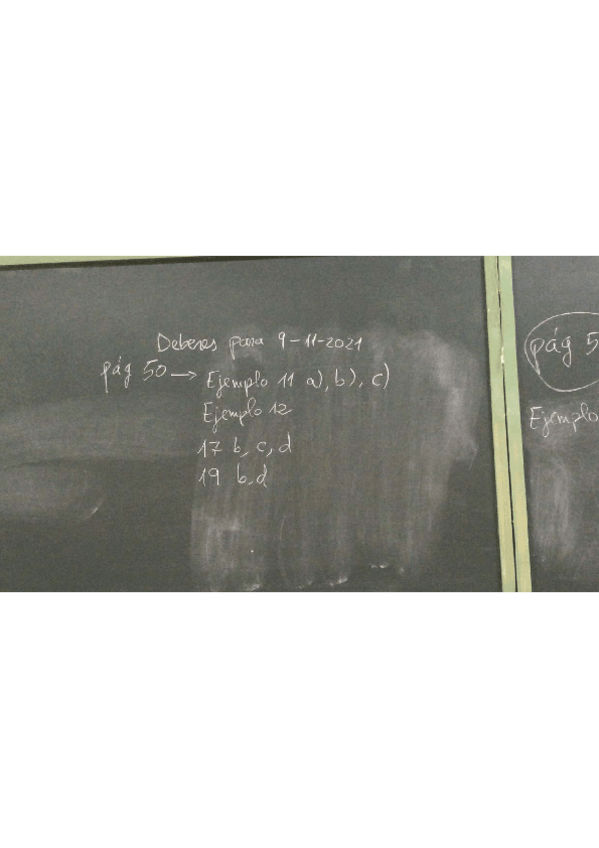 Deberes para 9-11-2021
pág 50 → Ejemplo 11 a), b), c)
Ejemplo 12
17 b, c, d
19 b, d
pág 5
Ejemplo